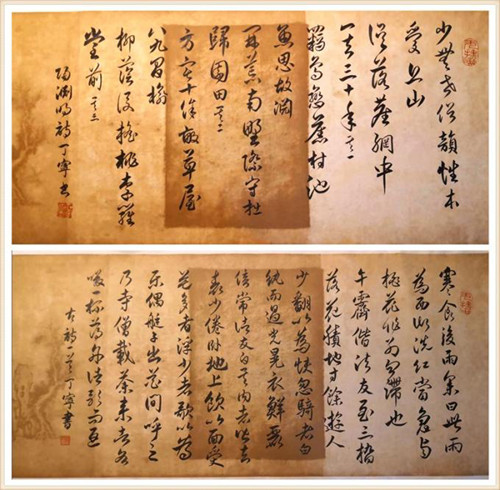 少無適俗韻性本
愛丘山
誤落塵網中
一去三十年 其一
羈鳥戀舊林池
魚思故淵
開荒南野際守拙
歸園田 其二
方宅十餘畝草屋
八九間榆
柳蔭後檐桃李羅
堂前 其三
陶淵明詩丁寧書
寒食後雨余曰此雨
為西湖洗紅當急與
桃花作別勿滯也
午霽偕諸友至三橋
落花積地寸餘遊人
少翻以為快忽騎者白
紈而過光晃衣鮮麗
倍常諸友白其內者皆去
表少倦臥地上飲以面受
花多者浮少者歌以為
樂偶艇子出花間呼之
乃寺僧載茶來者各
啜杯蕩舟浩歌而返
古詩一首丁寧書